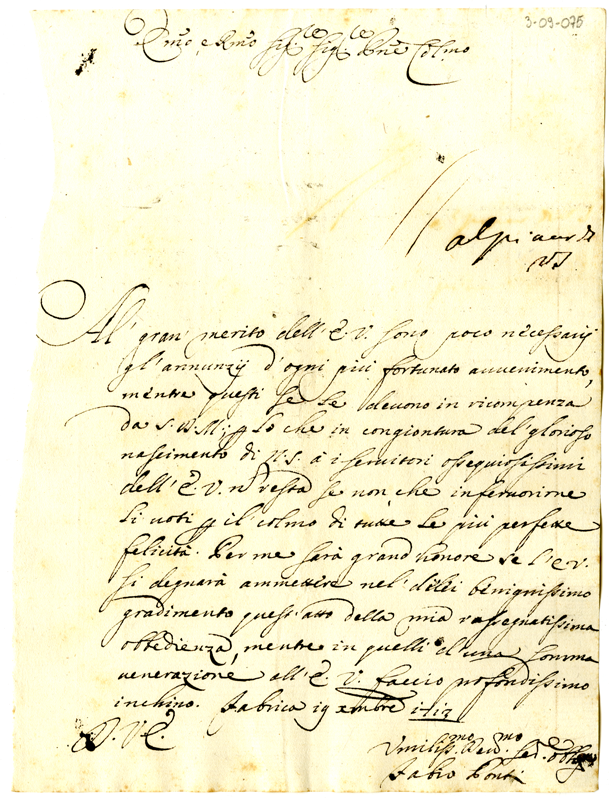 3-09-075
Em̃o e Rm̃o Sig.re Sig.re Pne Colmo
Al' gran' merito dell' E. V. sono poco necessarij
gl'annunzij d'ogni più fortunato avvenimento,
mentre questi se le devono in ricompenza
da S. D. M; p lo che in congiontura del' glorioso
nascimento di N.S. à i servitori ossequiosissimi
dell' E. V. ñ resta se non' che infervorirne
li voti p il colmo di tutte le più perfette
felicità. Per me sarà grand' honore se l'E V.
si degnarà ammettere nel' dilei benignissimo
gradimento quest'atto della mia rassegnatissima
obbedienza, mentre in quelli d'una somma
venerazione all' E. V. faccio profondissimo
inchino. Fabrica 19 xmbre 1712
D. V. E.
Vmiliss.mo Deu.mo Se.
Fabio Ponti